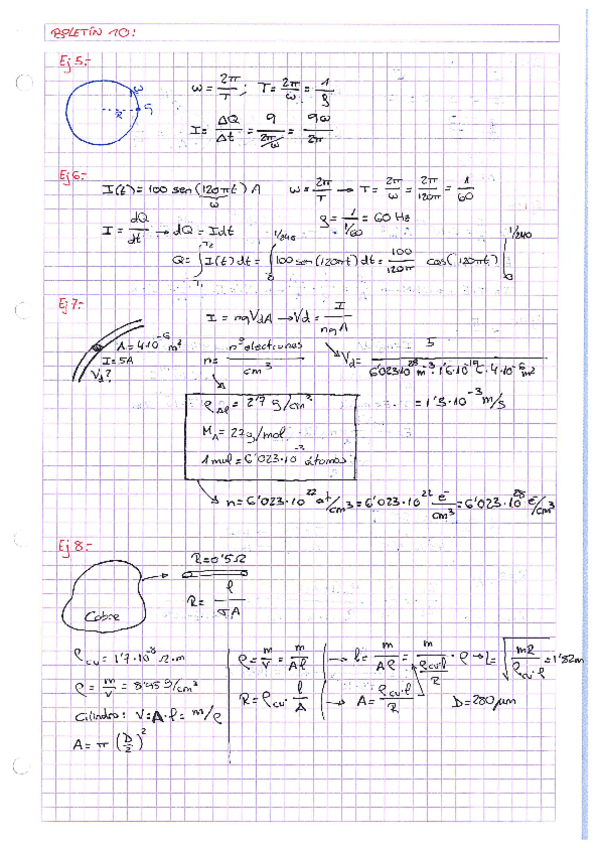 BOLETÍN 10:
Ej 5:-
ω = 2π/T ; T = 2π/ω = 1/f
I = ΔQ/Δt = q/(2π/ω) = qω/2π
Ej 6:-
I(t) = 100 sen(120πt) A
ω
ω = 2π/T → T = 2π/ω = 2π/120π = 1/60
f = 1/(1/60) = 60 Hz
I = dQ/dt → dQ = Idt
Q = ∫ I(t) dt = ∫ 100 sen(120πt) dt = 100/120π cos(120πt) |
1/240
0
Ej 7:-
I = nqVdA → Vd = I/nqA
A = 4·10⁻⁶ m²
I = 5A
Vd?
n = nº electrones/cm³
Vd = 5/(6'023·10²⁸ m⁻³ · 1'6·10⁻¹⁹ C · 4·10⁻⁶ m²)
= 1'3·10⁻³ m/s
ρAl = 2'7 g/cm³
MA = 27 g/mol
1 mol = 6'023·10 átomos
n = 6'023·10²² at/cm³ = 6'023·10²² e⁻/cm³ = 6'023·10²⁸ e⁻/cm³
Ej 8:-
Cobre
R = 0'5 Ω
R = l/σA
ρcu = 1'7·10⁻⁸ Ω·m
ρ = m/V = 8'95 g/cm³
Cilindro: V = A·l = m/ρ
A = π (D/2)²
ρ = m/V = m/Al
R = ρcu · l/A
→ l = m/Aρ = m/(ρcu·l/R · ρ) → l = √(mR/ρcu·ρ) = 1'82m
→ A = ρcu·l/R
D = 280 μm